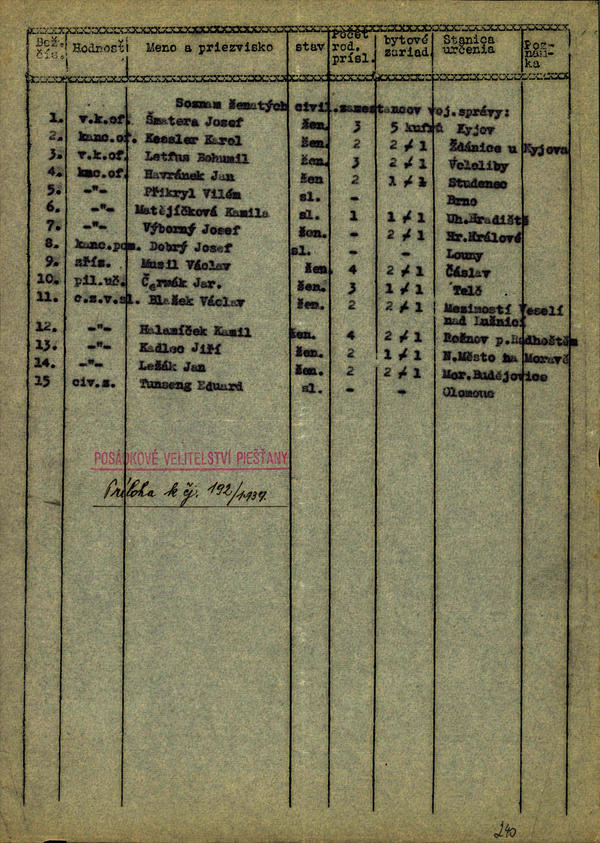 Bež. čís. Hodnosť Meno a priezvisko stav Počet rod. prísl. bytové zariad. Stanica určenia Poz- nám- ka
Soznam ženatých civil.zamestancov voj.správy:
1. v.k.of. Šmatera Josef žen. 3 5 kufrů Kyjov
2. kanc.of. Kessler Karel žen. 2 2 / 1 Ždánice u Kyjova
3. v.k.of. Letfus Bohumil žen. 3 2 / 1 Veleliby
4. knc.of. Havránek Jan žen 2 1 / 1 Studenec
5. -"- Přikryl Vilém sl. - - Brno
6. -"- Matějíčková Kamila sl. 1 1 / 1 Uh.Hradiště
7. -"- Výborný Josef žen. - 2 / 1 Hr.Králové
8. kanc.pom. Dobrý Josef sl. - - Louny
9. zříz. Musil Václav žen. 4 2 / 1 Čáslav
10. pil.uč. Čermák Jar. žen. 3 1 / 1 Telč
11. c.z.v.sl. Blažek Václav žen. 2 2 / 1 Mezimostí Veselí
nad Lužnicí
12. -"- Halamíček Kamil žen. 4 2 / 1 Rožnov p.Radhoštěm
13. -"- Kadlec Jiří žen. 2 1 / 1 N.Město na Moravě
14. -"- Ležák Jan žen. 2 2 / 1 Mor.Budějovice
15 civ.z. Tunseng Eduard sl. - - Olomouc
POSÁDKOVÉ VELITELSTVÍ PIEŠŤANY
Príloha k čj. 192/1939.
240